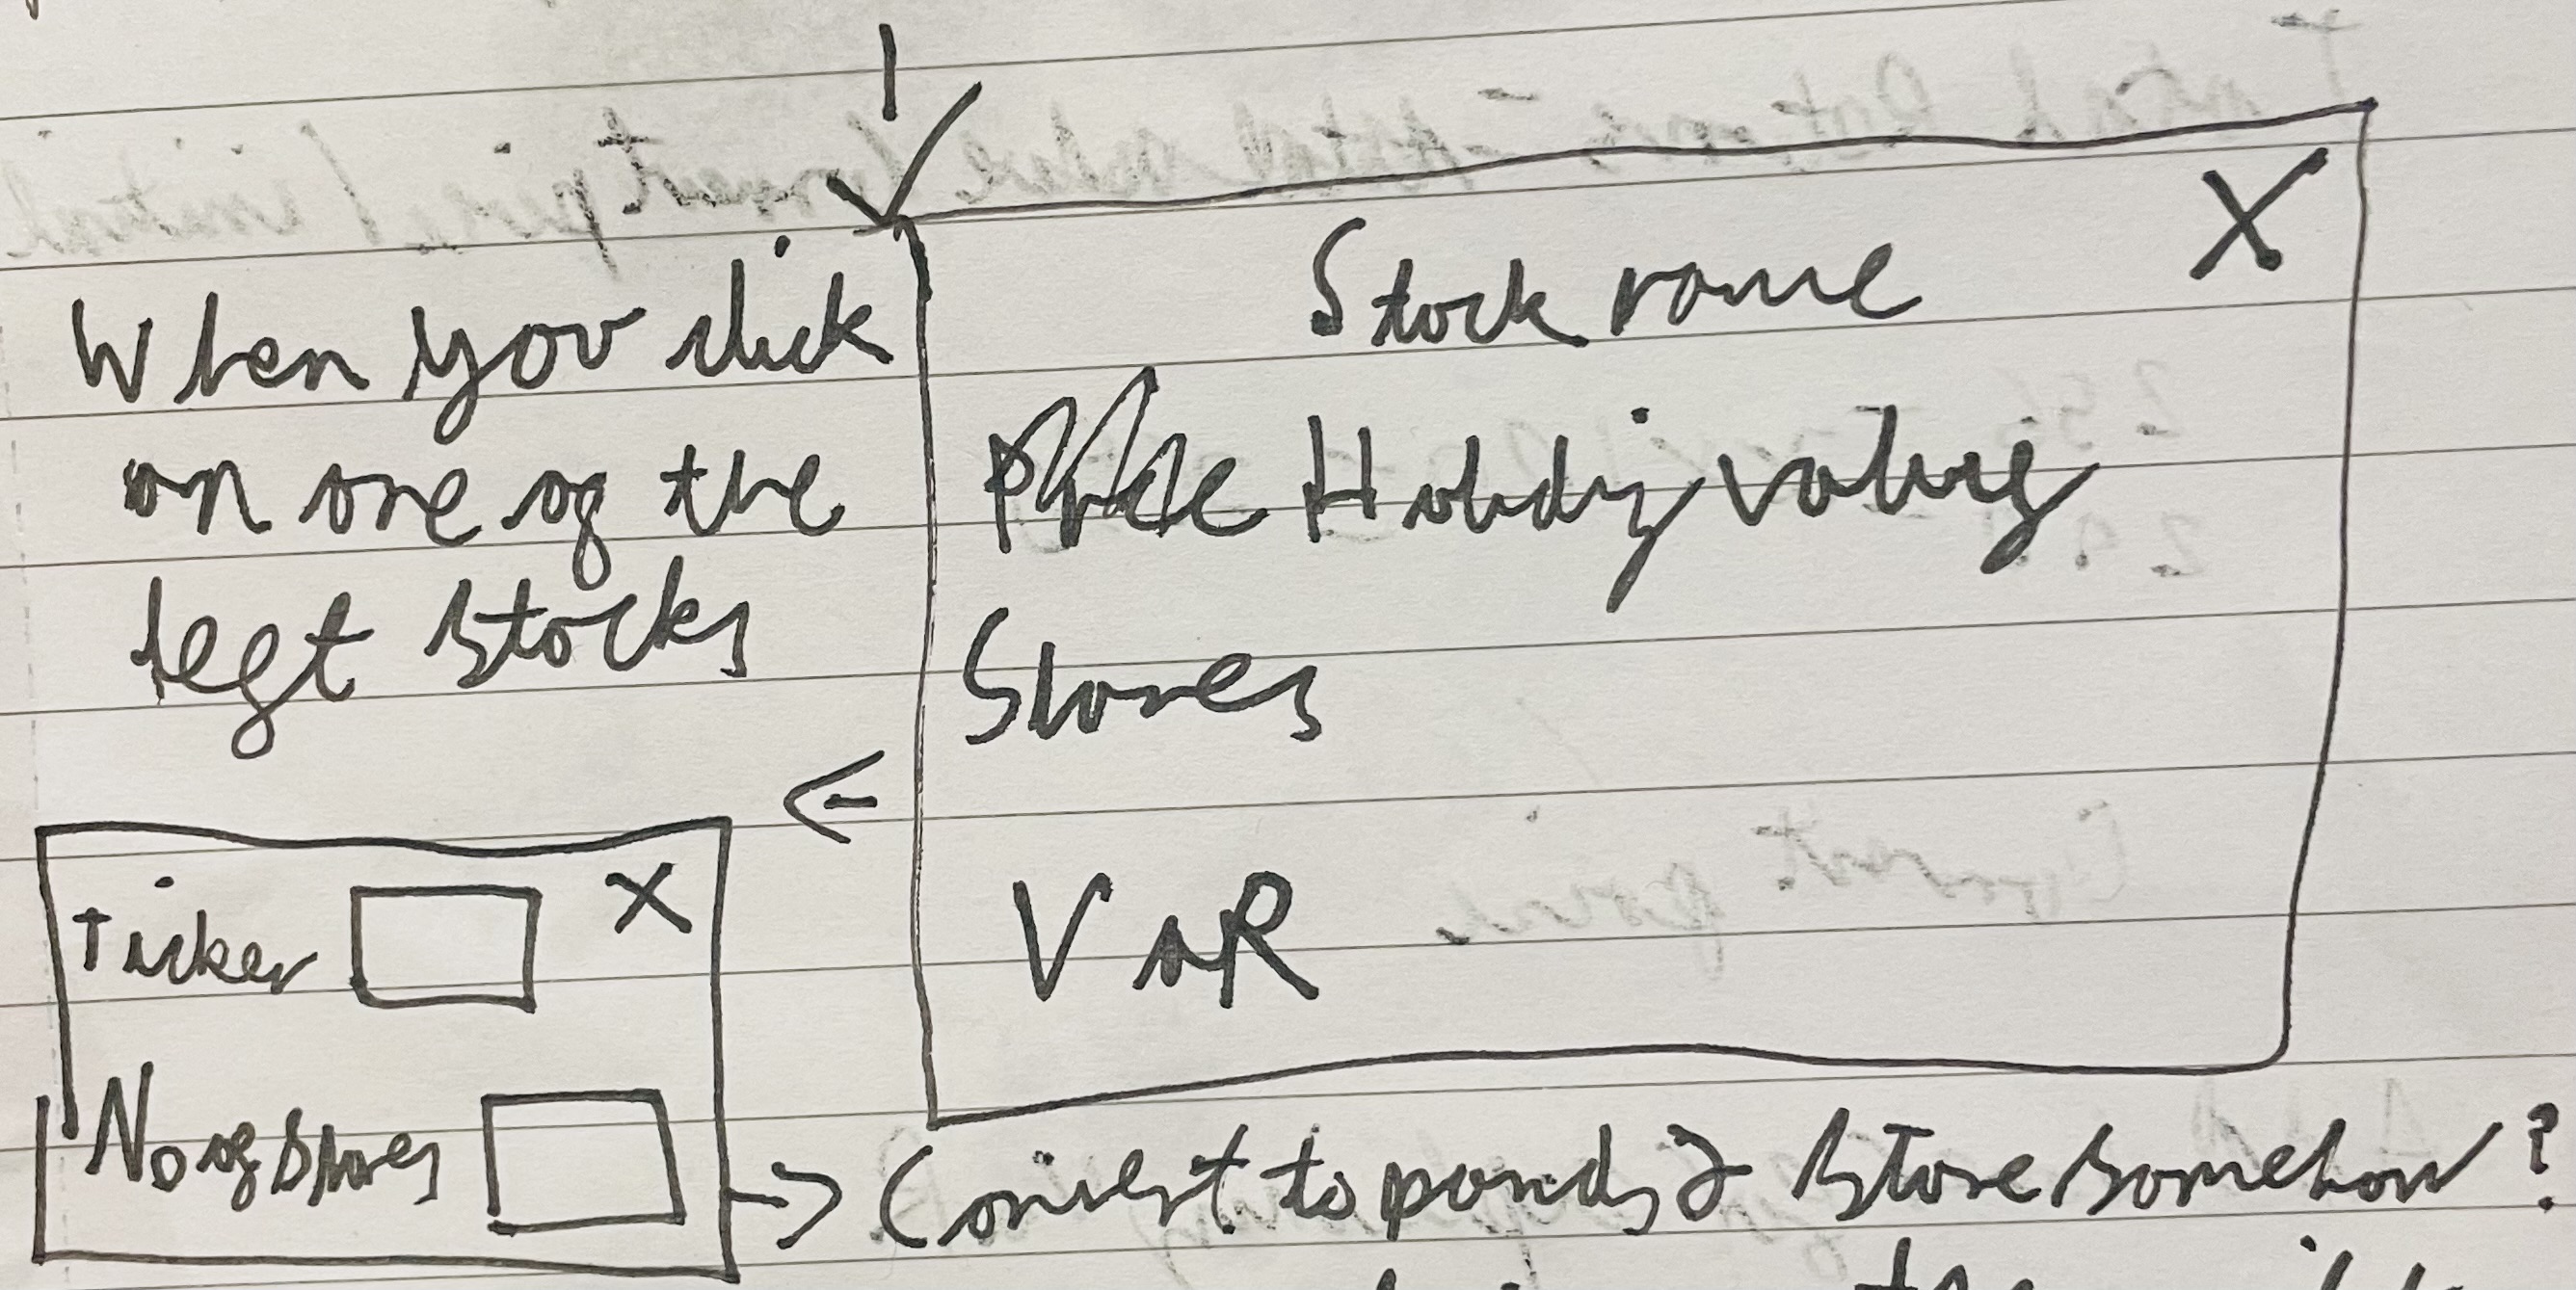 When you click
on one of the
left stocks
X
Stock name
Holding values
Shares
VaR
Ticker
X
No of shares
Convert to pounds & store somehow?